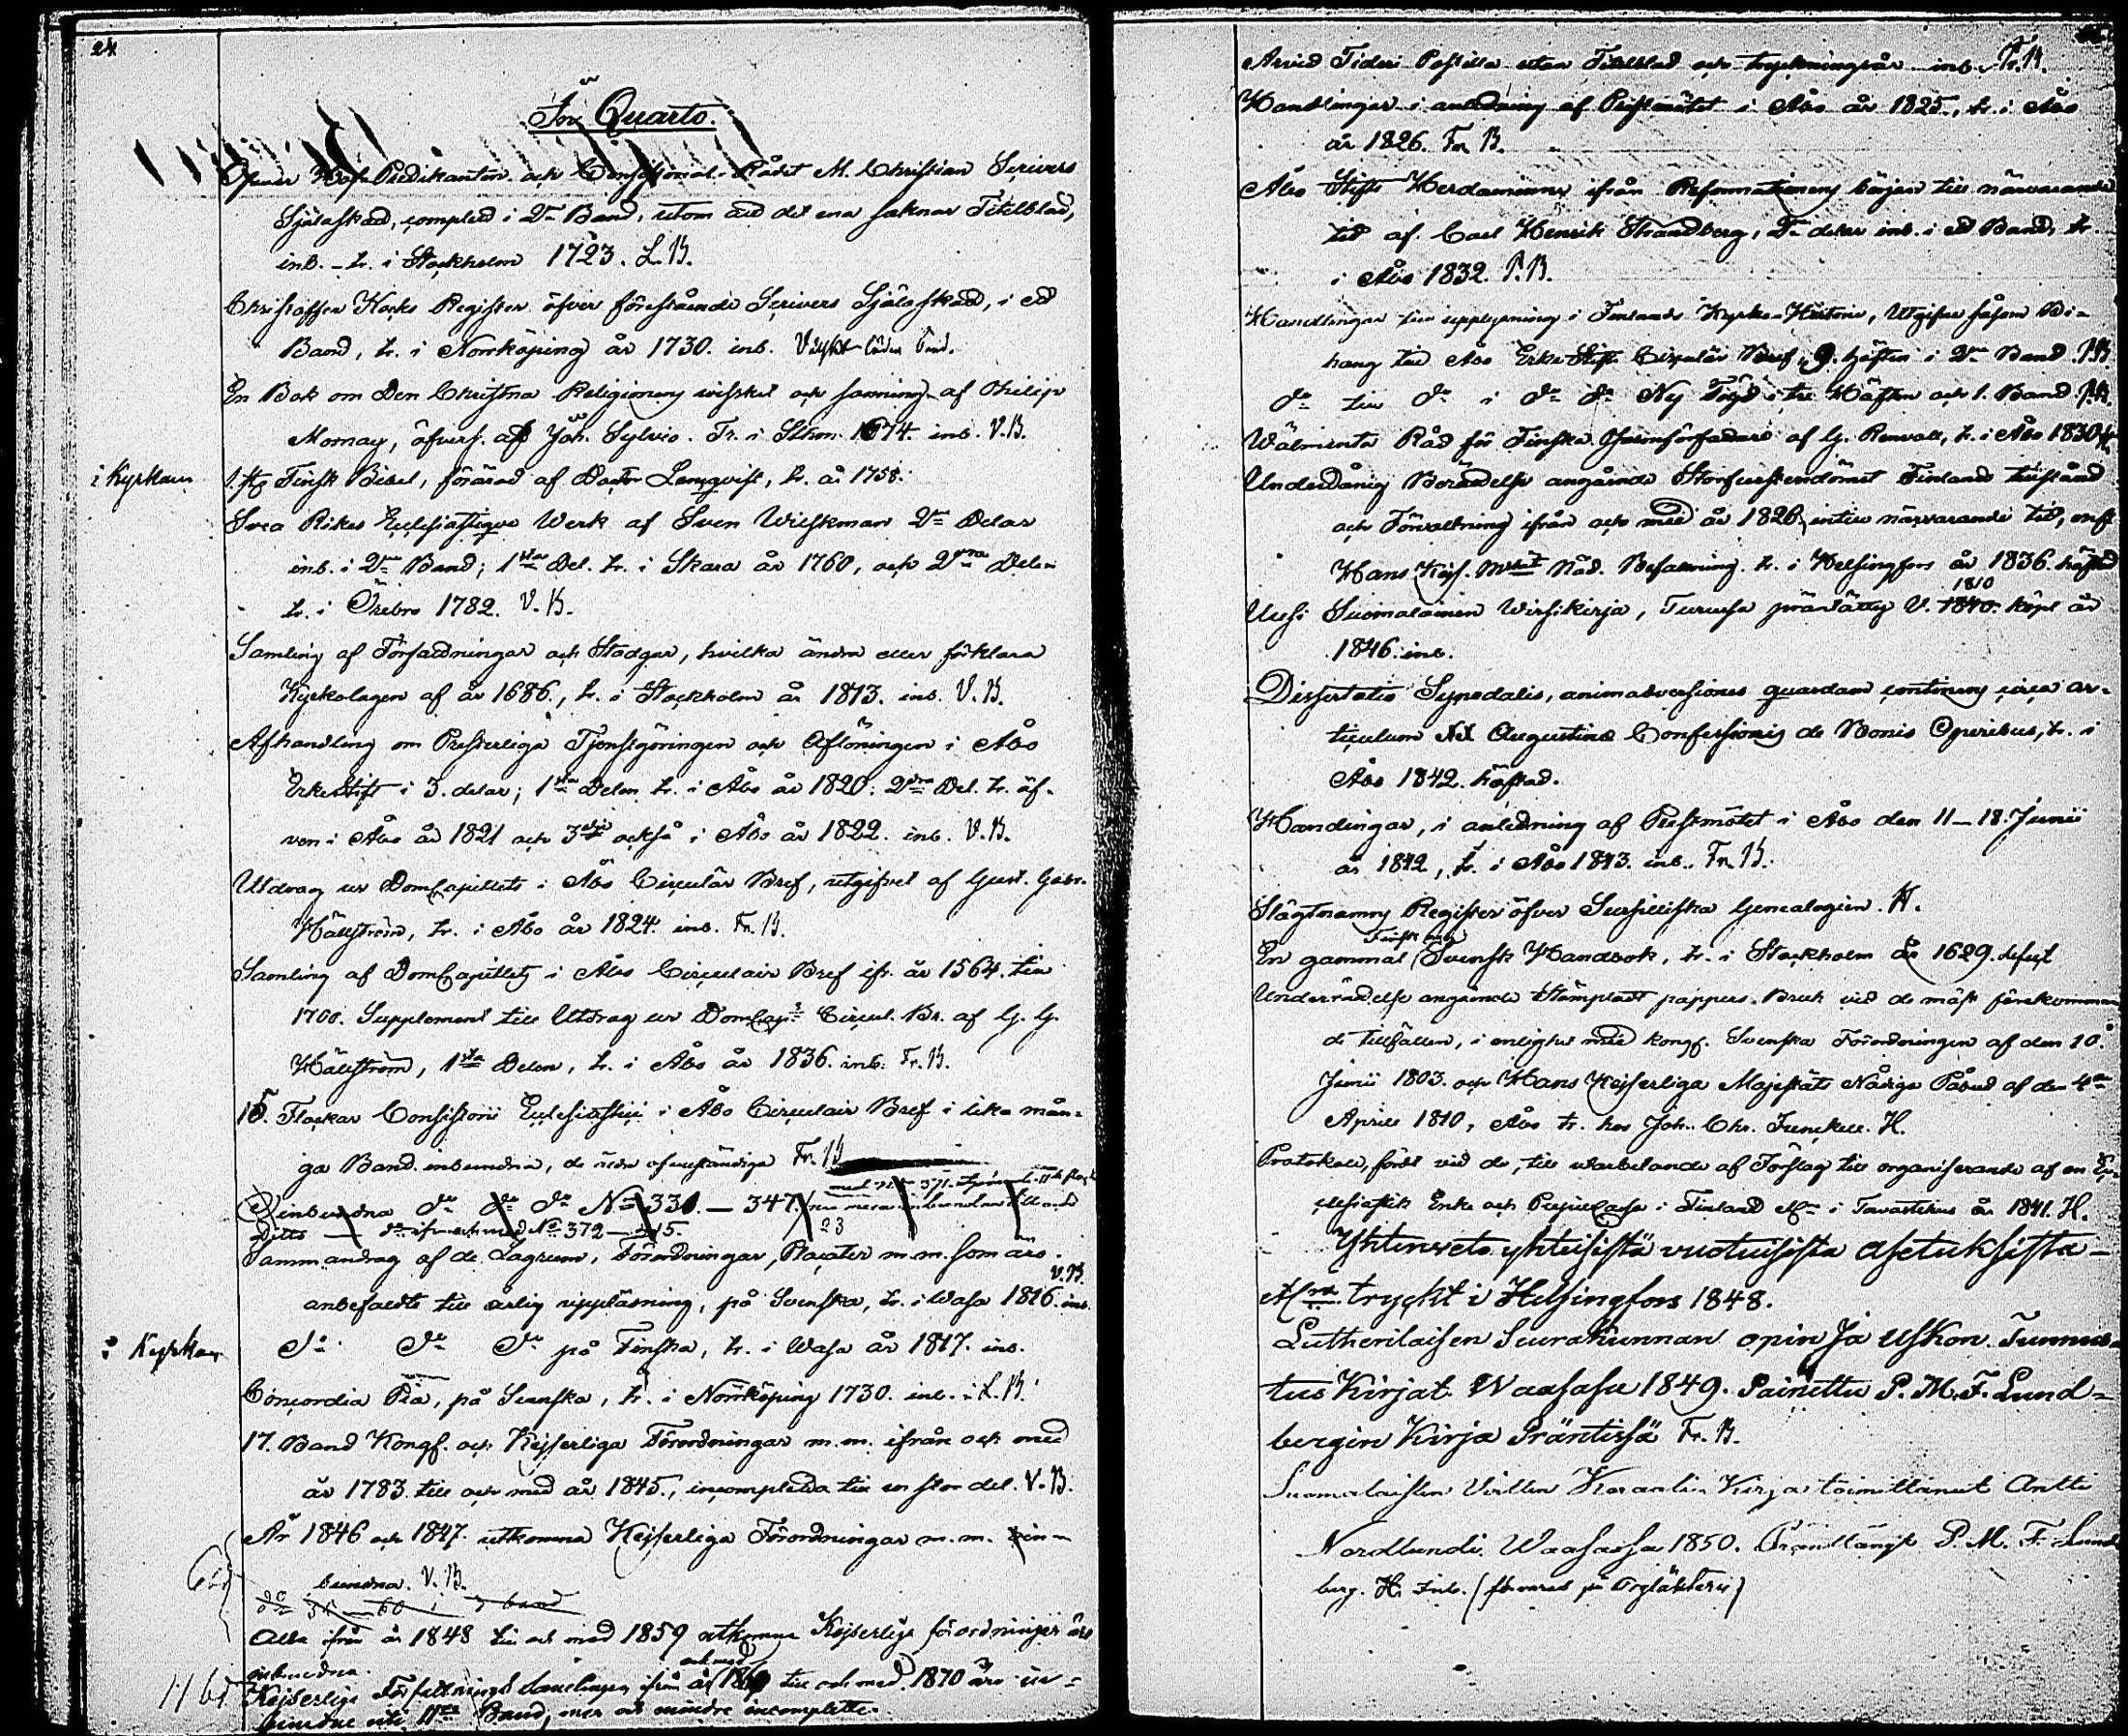 24.
In Quarto.
Hof-Predikanten och Consistorial-Rådet M. Christian Scrivers
Själaskatt, complett i 2ne Band, utom att det ena saknar Titelblad,
inb. - tr. i Stockholm 1723. L.B.
Christoffer Kocks Register öfver förestående Scrivers Själaskatt, i ett
Band, tr. i Norrköping år 1730. inb.
En Bok om Den Christna Religionens wisshet och sanning af Philip
Mornay, öfvers. af Joh. Sylvio. Tr. i Sthm. 1674. inb. V.B.
i Kyrkan 1. st. Finsk Bibel, förärad af Doctor Lenqvist, tr. år 1758.
Svea Rikes Ecclesiastique Werk af Sven Wilskman 2ne Delar
inb. i 2ne Band; 1sta Del. tr. i Skara år 1760, och 2dra Delen
tr. i Örebro 1782. V.B.
Samling af Författningar och Stadgar, hvilka ändra eller förklara
Kyrkolagen af år 1686., tr. i Stockholm år 1813. inb. V.B.
Afhandling om Presterliga Tjenstgöringen och Aflöningen i Åbo
Erkestift i 3. delar; 1sta Delen tr. i Åbo år 1820. 2dra Del. tr. äf-
ven i Åbo år 1821 och 3dje också i Åbo år 1822. inb. V.B.
Utdrag ur DomCapitlets i Åbo Circulär Bref, utgifvet af Gust. Gabr.
Hällström, tr. i Åbo år 1824. inb. Fr.B.
Samling af DomCapitlets i Åbo Circulair Bref ifr. år 1564. till
1700. Supplement till Utdrag ur DomCap:s Circul. Br. af G. G.
Hällström, 1sta Delen, tr. i Åbo år 1836. inb. Fr.B.
15. Flockar Consistorii Ecclesiastici i Åbo Circulair Bref i lika mån-
ga Band inbundna, de äldre ofullständiga Fr. B
Oinbundna do do do No 331. — 347.
Ditto do ifr. och med No 372
23
Sammandrag af de Lagrum, Förordningar, Placater m.m. som äro
V.B.
anbefaldte till årlig uppläsning, på Svenska, tr. i Wasa 1816. inb.
i Kyrkan do do do på Finska, tr. i Wasa år 1817. inb.
Concordia Pia, på Svenska, tr. i Norrköping 1730. inb. i L.B.
17. Band Kongl. och Kejserliga Förordningar m.m. ifrån och med
år 1783. till och med år 1845., incompletta till en stor del. V.B.
År 1846 och 1847. utkomna Kejserliga Förordningar m.m. oin-
bundna. V.B.
Alla ifrån år 1848 till och med 1859 utkomna Kejserliga förordningar äro
inbundna.
och med
Kejserliga Författnings Samlingen ifrån år 1860 till och med 1870 äro in-
bundne uti 11 Band, mer och mindre incomplette.
Arvid Tideri Postilla utan Titelblad och tryckningsår inb. Fr.B.
Handlingar i anledning af Prestmötet i Åbo år 1825., tr. i Åbo
år 1826. Fr. B.
Åbo Stifts Herdaminne ifrån Reformationens början till närvarande
tid af Carl Henrik Strandberg, 2ne delar inb. i ett Band, tr.
i Åbo 1832. P.B.
Handlingar till upplysning i Finlands Kyrko-Historie, Utgifne såsom Bi-
hang till Åbo Erke-Stifts Circulär Bref, 9. häften i 2ne Band. P.B.
do till do i do do Ny Följd i tre Häften och 1. Band. P.B.
Wälmenta Råd för Finska Psalmförfattare af G. Renvall, tr. i Åbo 1830
Underdånig Berättelse angående Storfurstendömet Finlands tillstånd
och Förvaltning ifrån och med år 1826, intill närvarande tid, enl.
Hans Kejs. Mst:s Nåd. Befallning. tr. i Helsingfors år 1836. häftad
1810
Uusi Suomalainen Wirsikirja, Turusa präntätty V. 1840. köpt år
1846. inb.
Dissertatio Synodalis, animadversiones quasdam continens circa ar-
ticulum Augustanæ Confessionis de Bonis Operibus, tr. i
Åbo 1842. häftad.
Handlingar, i anledning af Prestmötet i Åbo den 11–18. Junii
år 1842, tr. i Åbo 1843. inb. Fr. B.
Slägtnamns Register öfver Sursilliska Genealogien. H.
Finsk och
En gammal Svensk Handbok, tr. i Stockholm år 1629. defect
Underrättelse angående Stämpladt pappers Bruk vid de mäst förekomman
de tillfällen, i enlighet med kongl. Svenska Förordningen af den 10.
Junii 1803. och Hans Kejserliga Majestäts Nådiga Påbud af den 4de
Aprill 1810, Åbo tr. hos Joh. Chr. Frenckell. H.
Protokoll, fördt vid de, till utarbetande af Förslag till organiserande af en Ec-
clesiastik Enke och PupillCassa i Finland i Tavastehus år 1841. H.
Yhtenveto yhteisistä vuotuisista asetuksista—
tryckt i Helsingfors 1848.
Lutherilaisen Seurakunnan opin Ja Uskon Tunnus-
tus Kirjat. Waasasa 1849. Painettu P. M. F. Lund-
bergin Kirja Präntissä Fr. B.
Suomalaisten Virtten Koraali-Kirja toimittanut Antti
Nordlundi. Waasassa 1850. P. M. F. Lund
berg. H. Inb. (förvaras på Orgläktern)